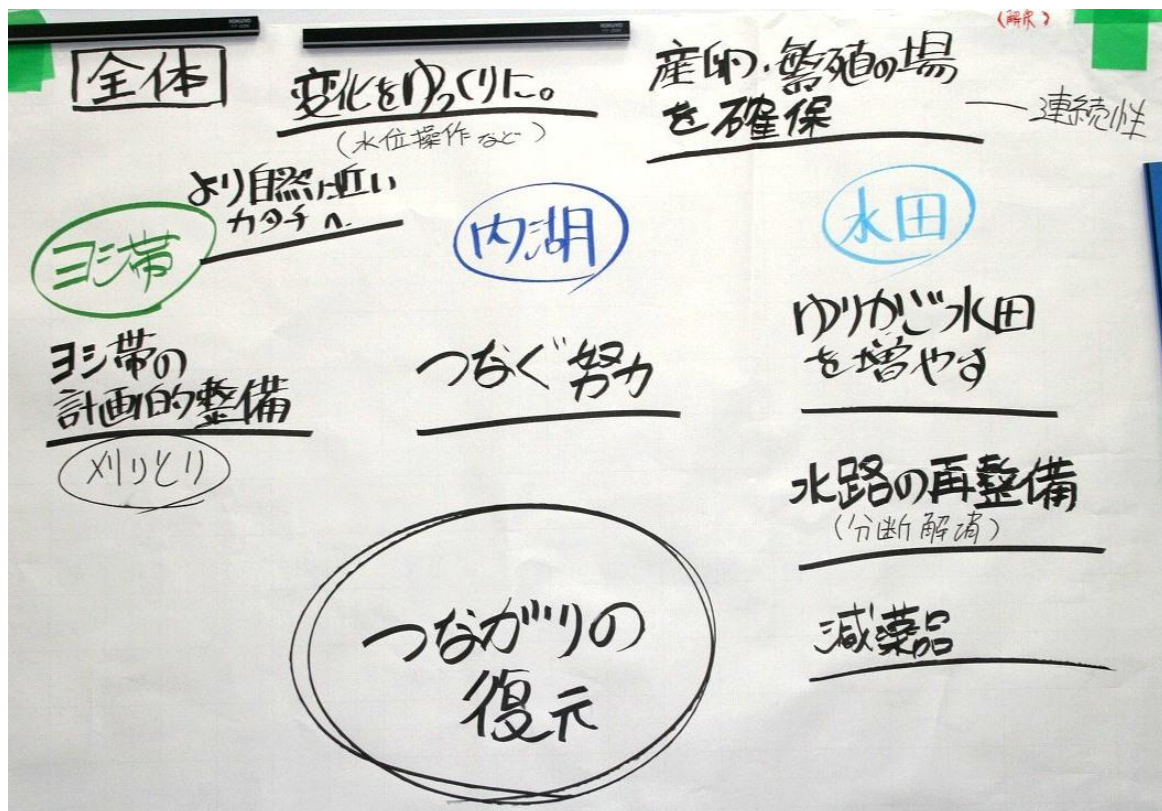 (解決)
全体
変化をゆっくりに。
(水位操作など)
産卵・繁殖の場
を確保
連続性
より自然に近い
カタチへ
ヨシ帯
内湖
水田
ヨシ帯の
計画的整備
刈りとり
つなぐ努力
ゆりかご水田
を増やす
水路の再整備
(分断解消)
減薬品
つながりの
復元